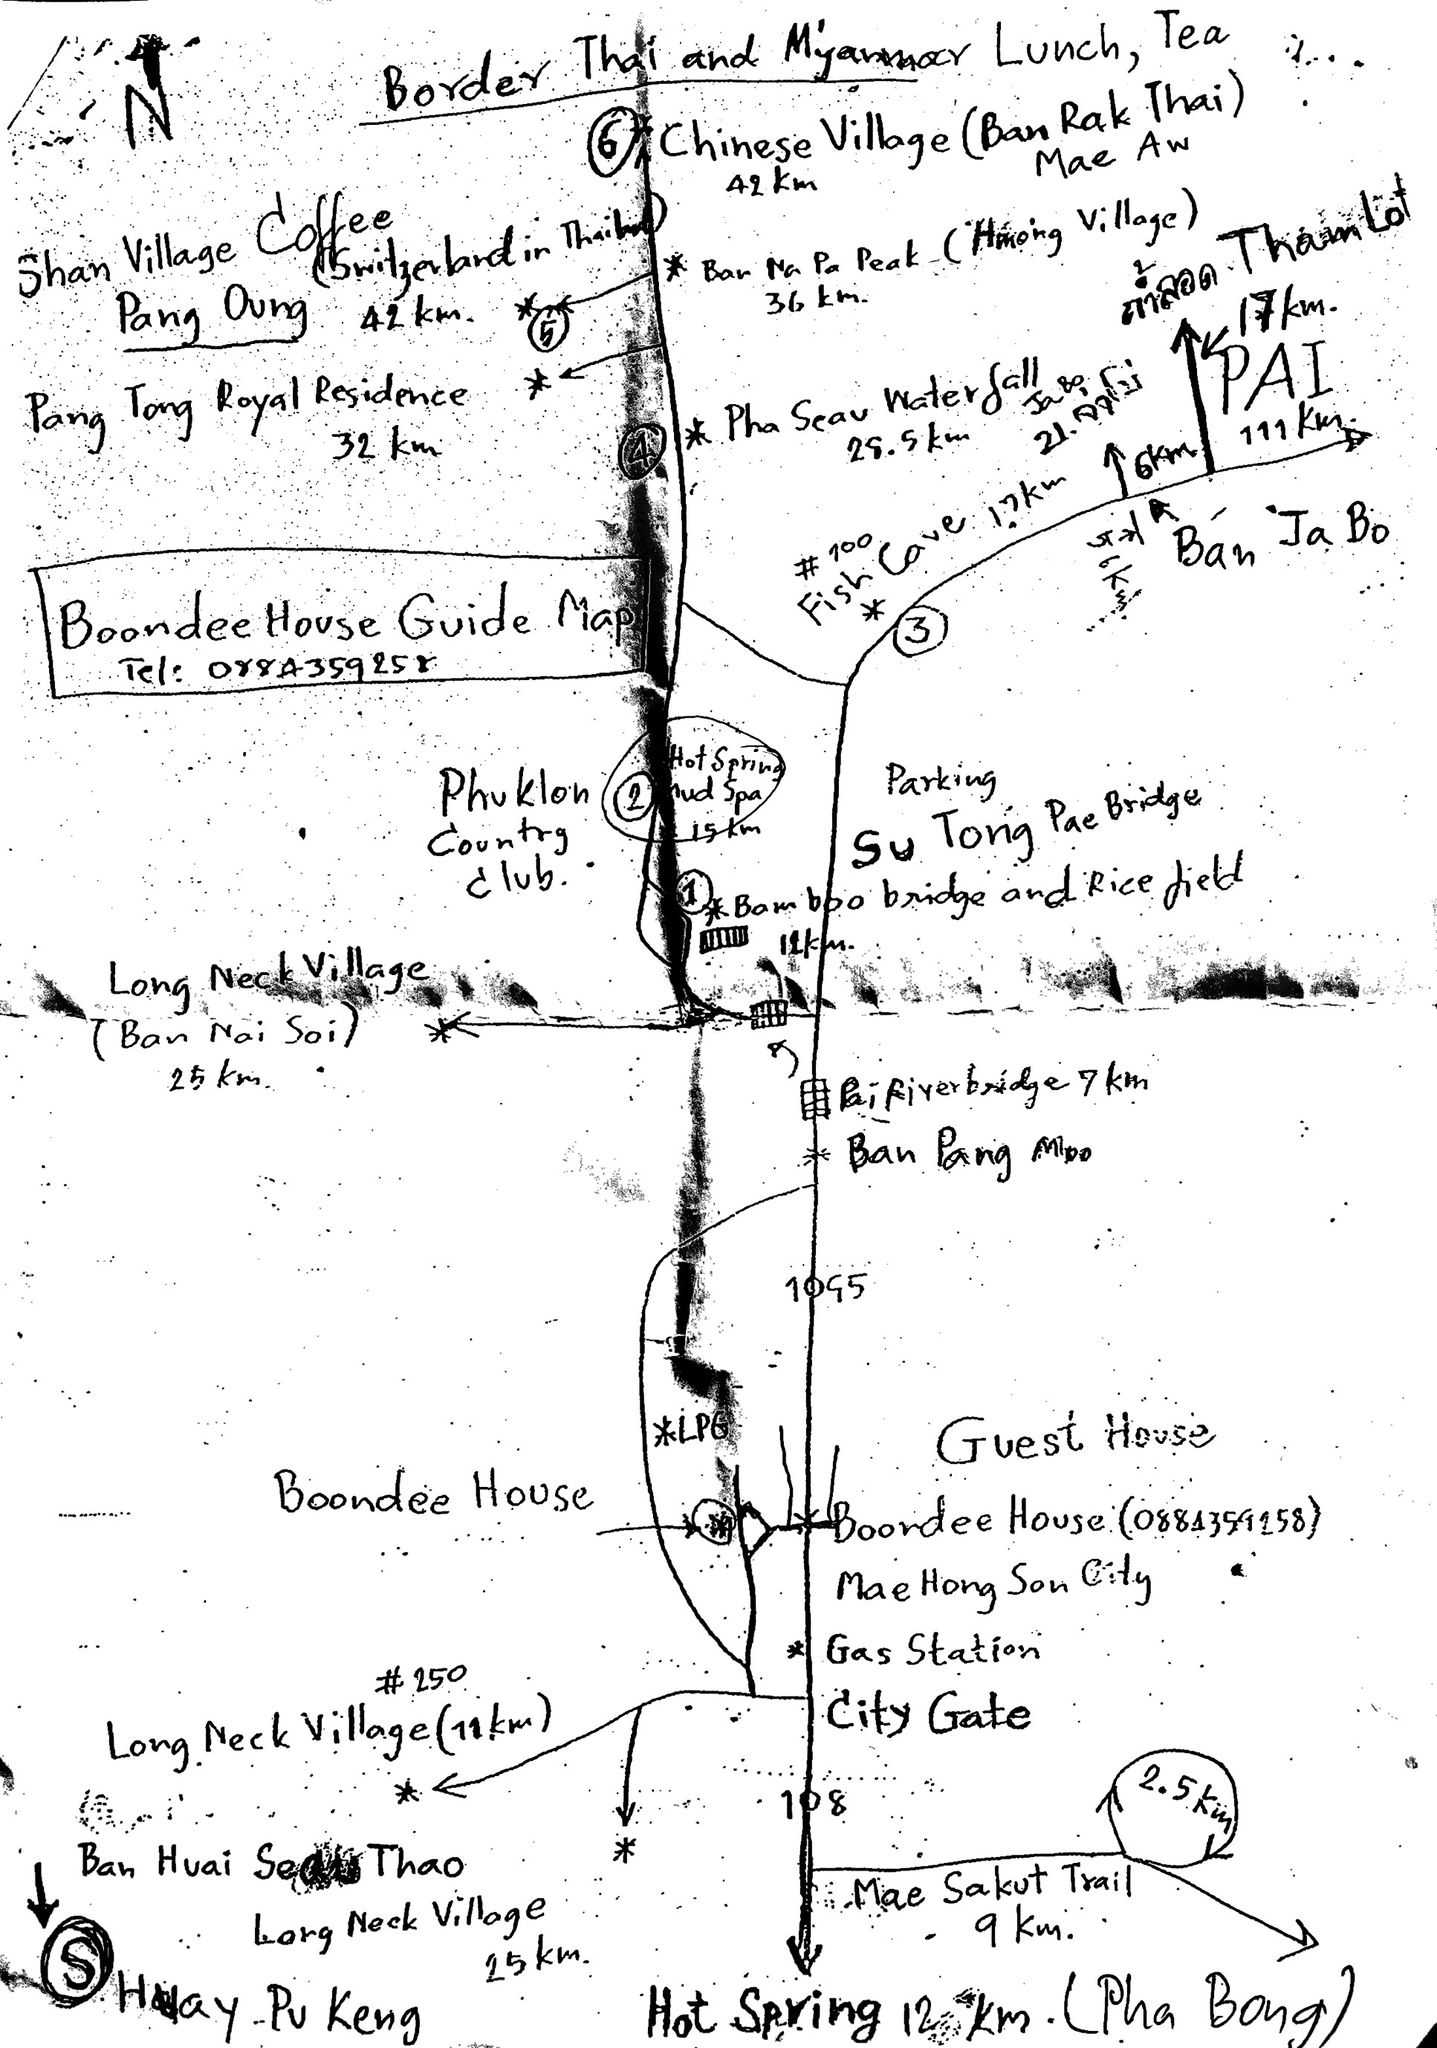 N
Border Thai and Myanmar Lunch, Tea
6 * Chinese Village (Ban Rak Thai)
Mae Aw
42 km
Shan Village Coffee
(Switzerland in Thailand)
Pang Oung 42 km.
5
* Ban Na Pa Peak (Hmong Village)
36 km.
Tham Lot
ถ้ำลอด
17 km.
PAI
111 km.
Pang Tong Royal Residence
32 km
4 * Pha Seau Waterfall
28.5 km
Ja Bo
6 km
Ban Ja Bo
6 km
#100
Fish Cave 17 km
3
Boondee House Guide Map
Tel: 0884359258
Phuklon
Country
Club.
2
Hot Spring
Mud Spa
15 km
Parking
Su Tong Pae Bridge
1 * Bamboo bridge and Rice field
12 km.
Long Neck Village
(Ban Nai Soi)
25 km.
Pai River bridge 7 km
Ban Pang Moo
1095
* LPG
Guest House
Boondee House
Boondee House (0884359258)
Mae Hong Son City
* Gas Station
City Gate
#250
Long Neck Village (11 km)
108
2.5 km
Ban Huai Seau Thao
Mae Sakut Trail
9 km.
Long Neck Village
25 km.
S
Huay Pu Keng
Hot Spring 12 km. (Pha Bong)